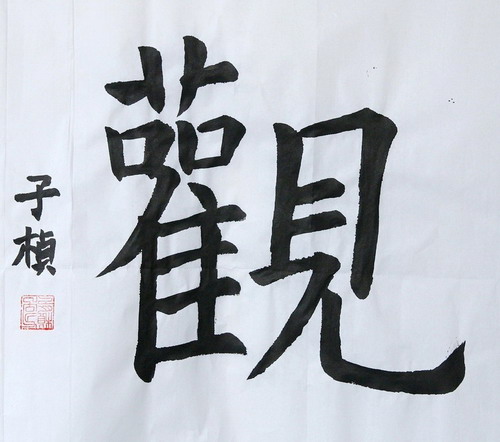 觀
子楨